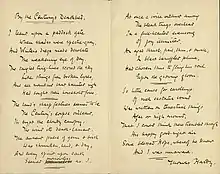 By the Century's Deathbed.
I leant upon a paddock gate
When shades were spectre-gray,
And Winter's dregs made desolate
The weakening eye of day.
The tangled bine-stems scored the sky
Like strings from broken lyres,
And all mankind that haunted nigh
Had sought their household fires.
The land's sharp features seemed to be
The Century's corpse outleant,
Its crypt the cloudy canopy,
The wind its death-lament.
The ancient pulse of germ & birth
Was shrunken hard & dry,
And every spirit upon earth
Seemed fervourless as I.
At once a voice outburst among
The bleak twigs overhead
In a full-hearted evensong
Of joy illimited;
An aged thrush, frail, gaunt, & small,
In blast-beruffled plume,
Had chosen thus to fling his soul
Upon the growing gloom.
So little cause for carollings
Of such ecstatic sound
Was written on terrestrial things
Afar or nigh around,
That I could think there trembled through
His happy good-night air
Some blessed Hope, whereof he knew
And I was unaware.
Thomas Hardy